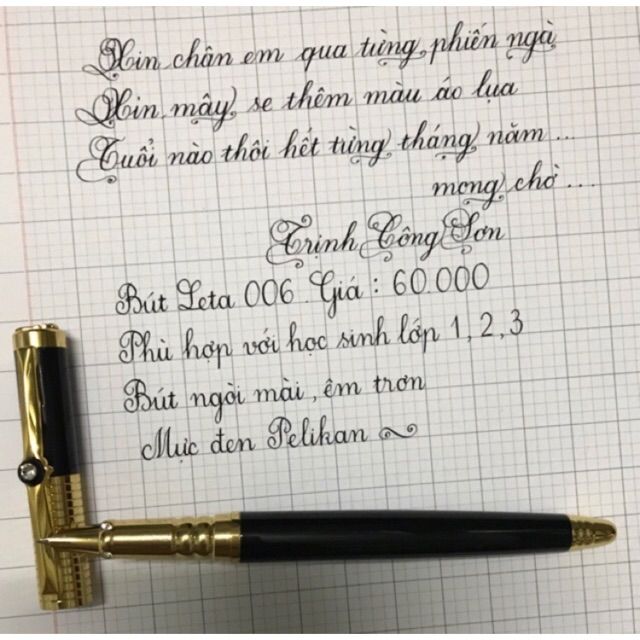 Xin chân em qua từng phiến ngà
Xin mây se thêm màu áo lụa
Tuổi nào thôi hết từng tháng năm ...
mong chờ ...
Trịnh Công Sơn
Bút Leta 006. Giá : 60.000
Phù hợp với học sinh lớp 1, 2, 3
Bút ngòi mài, êm trơn
Mực đen Pelikan